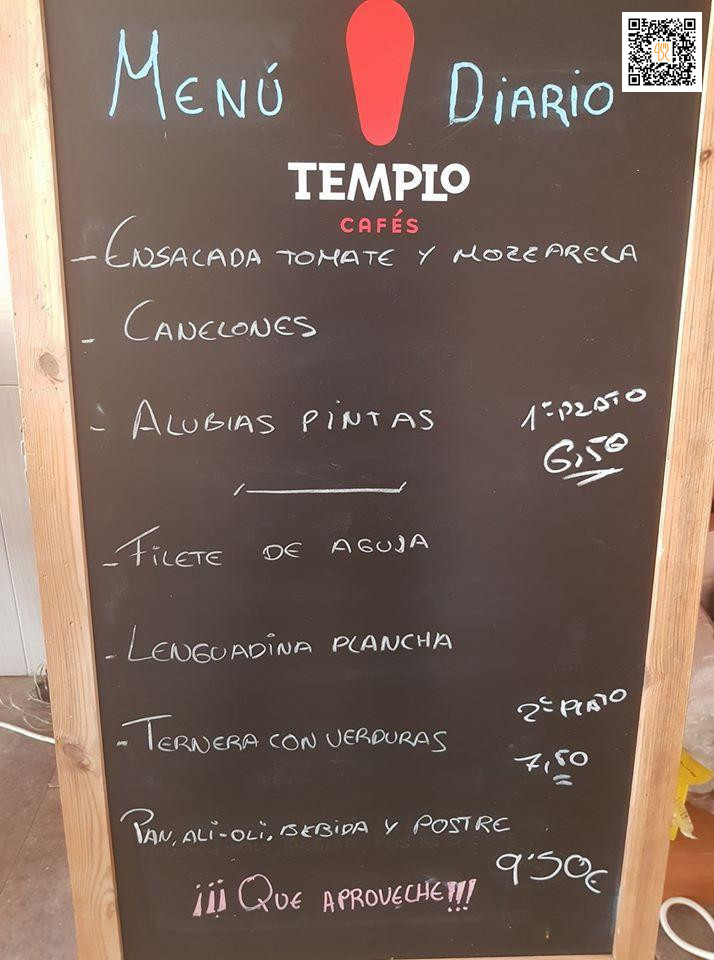 MENÚ DIARIO
TEMPLO
CAFÉS
- ENSALADA TOMATE Y MOZZARELA
- CANELONES
- ALUBIAS PINTAS
1º PLATO
6,50
- FILETE DE AGUJA
- LENGUADINA PLANCHA
2º PLATO
- TERNERA CON VERDURAS
7,50
PAN, ALI-OLI, BEBIDA Y POSTRE
9'50€
¡¡¡ QUE APROVECHE!!!